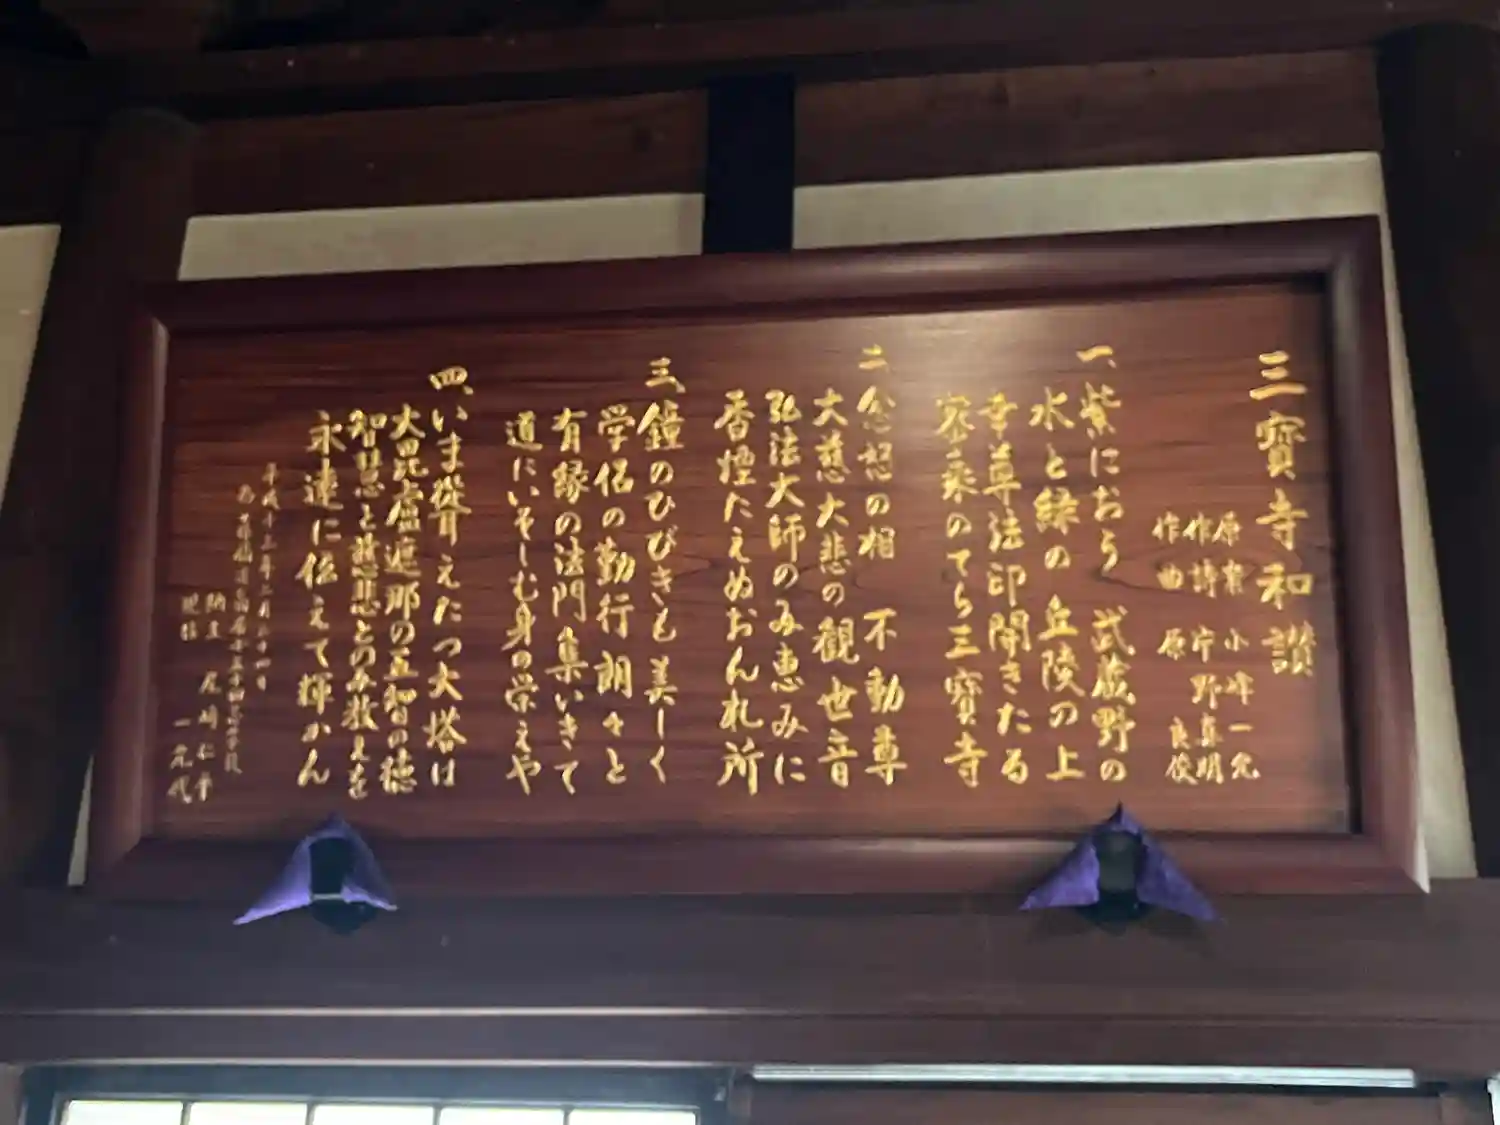 三寳寺和讃
原案 小峰一允
作詩 宇野真明
作曲 原 良俊
一、紫におう 武蔵野の
水と緑の 丘陵の上
幸尊法印開きたる
密乗のてら三寳寺
二、忿怒の相 不動尊
大慈大悲の観世音
弘法大師のみ恵みに
香煙たえぬおん札所
三、鐘のひびきも美しく
学侶の勤行朗々と
有縁の法門集いきて
道にいそしむ身の栄えや
四、いま聳えたつ大塔は
大毘盧遮那の五智の徳
智慧と慈悲とのみ教えを
永遠に伝えて輝かん
平成十三年三月二十四日
納主 尾崎仁平
一允代